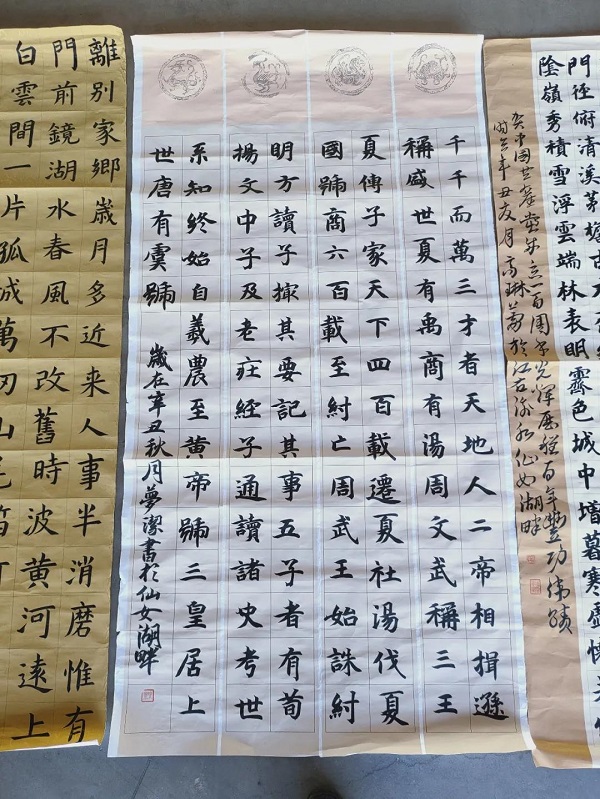 門徑俯清溪茅檐古木
陰嶺秀積雪浮雲端林表明霽色城中增暮寒虛懷
中國共產黨成立一百周年光輝歷程百年豐功偉績
時在辛丑夏月高琳於江西渝水仙女湖畔
千千而萬三才者天地人二帝相揖遜
稱盛世夏有禹商有湯周文武稱三王
夏傳子家天下四百載遷夏社湯伐夏
國號商六百載至紂亡周武王始誅紂
明方讀子撮其要記其事五子者有荀
揚文中子及老莊經子通讀諸史考世
系知終始自羲農至黃帝號三皇居上
世唐有虞號
歲在辛丑秋月夢潔書於仙女湖畔
離別家鄉歲月多近来人事半消磨惟有
門前鏡湖水春風不改舊時波黃河遠上
白雲間一片孤城萬仞山羌笛